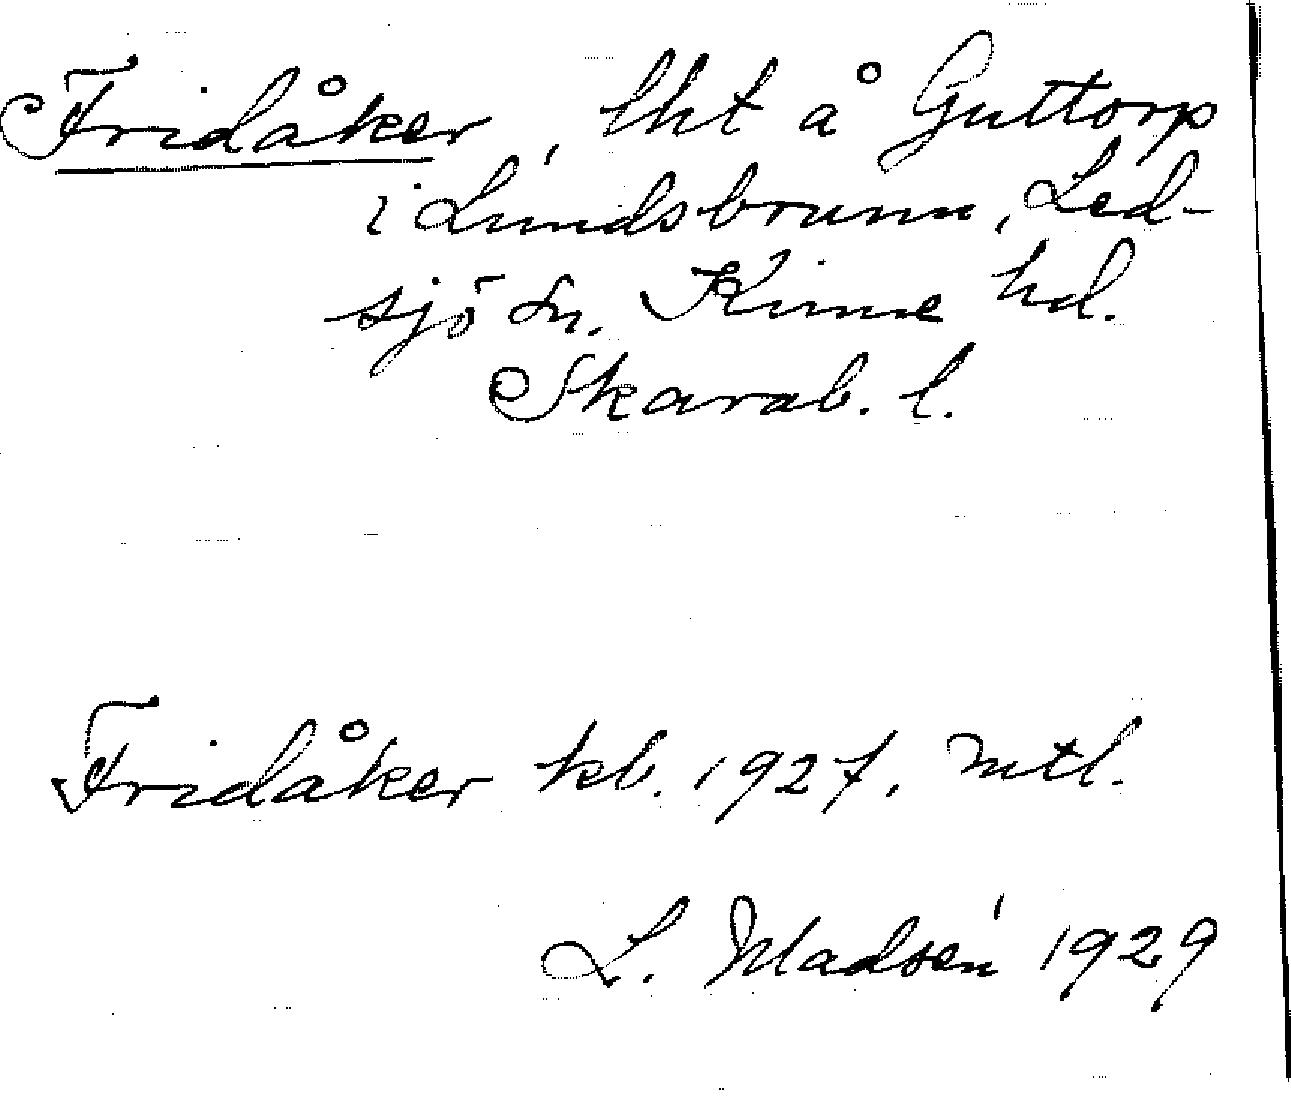 Fridåker, lht å Guttorp
i Lundsbrunn, Led-
sjö sn. Kinne hd.
Skarab. l.
Fridåker kb. 1927. mtl.
L. Madsén 1929